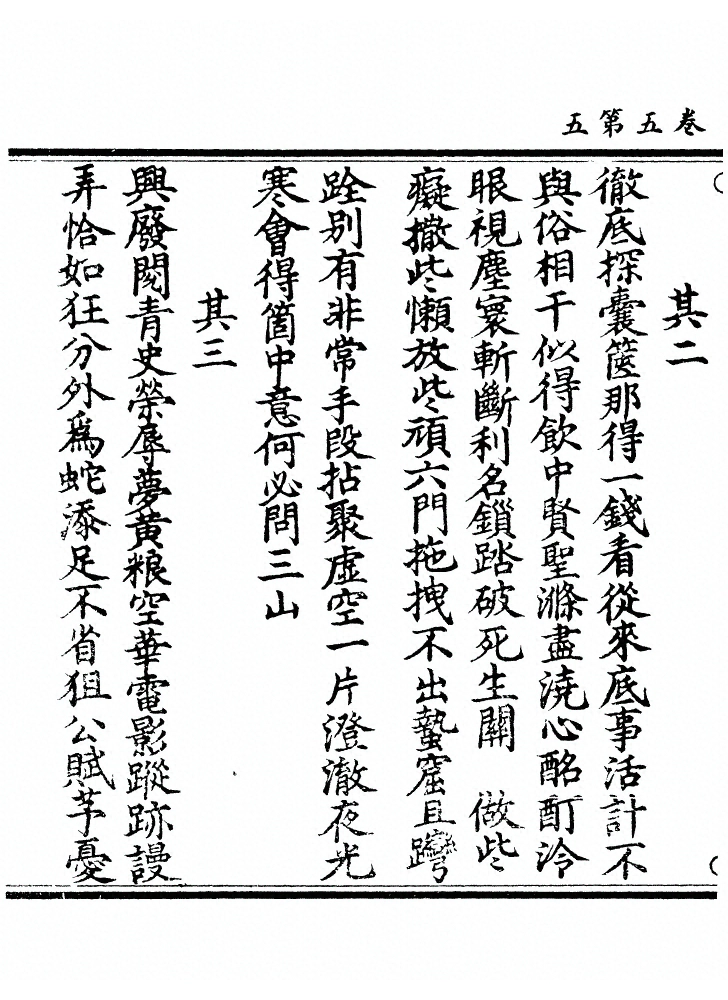 卷五第五
其二
徹底探囊篋那得一錢看從來底事活計不
與俗相干似得飲中賢聖滌盡澆心酩酊冷
眼視塵寰斬斷利名鎻踏破死生關　做些
癡撒些懶放些頑六門拖拽不出蟄窟且彎
跧别有非常手段拈聚虛空一片澄澈夜光
寒會得箇中意何必問三山
其三
興廢閱青史榮辱夢黄粮空華電影蹤跡謾
弄恰如狂分外爲蛇添足不省狙公賦芧憂